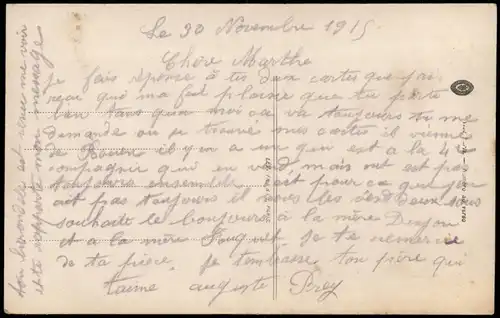 Le 30 Novembre 1915
Chere Marthe
Je fais reponse à tes deux cartes que j'ai
reçu qui ma fait plaisir que tu porte
bien tans qua moi ca va toujours tu me
demande ou se trouve mes cartes il vienne
de Rouen il y en a un qui est a la 4e
compagnie qui en vend, mais ont est pas
toujours ensemble, c'est pour ca que j'en
ait pas toujours il nous les vend deux sous
souhaite le bonjours à la mère
et a la mère je te remercie
de ta pièce. je tembrasse ton père qui
taime auguste Brey
ton hirondelle est venue me voir
et ta rapporté mon message